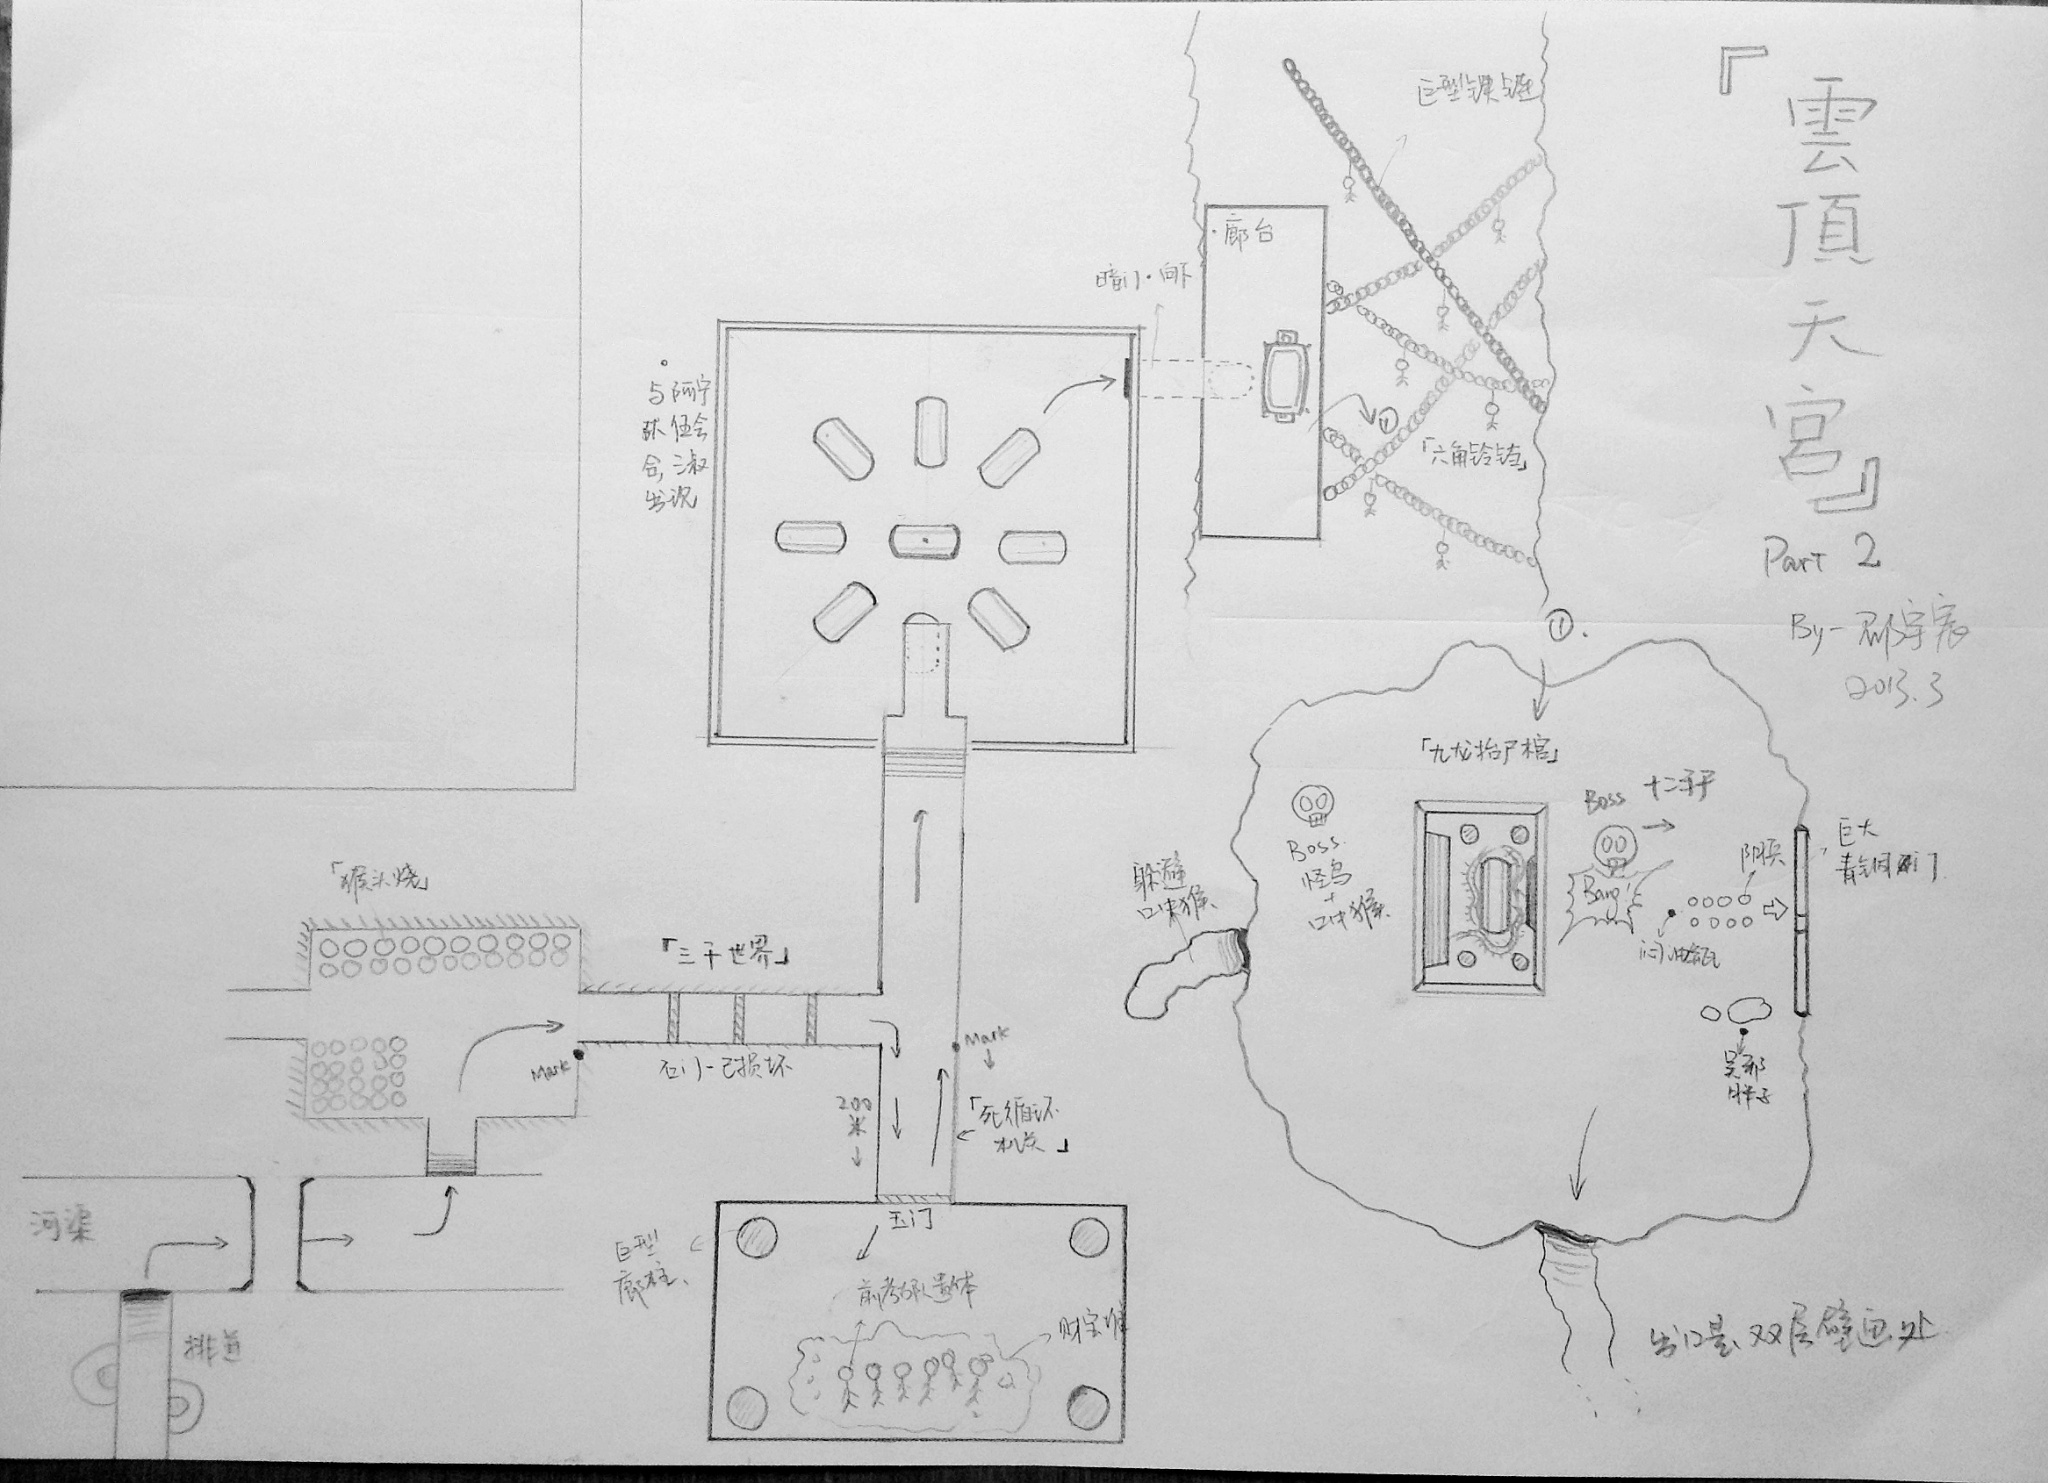 『雲頂天宮』
Part 2
By-郡宇宸
2013.3
巨型铁链
·廊台
暗门·向下
「六角铃铛」
①
与阿宁
队伍会
合,三叔
出没
①.
「九龙抬尸棺」
Boss
怪鸟
+
口中猴
Boss 十二手
Bang!
阴兵
巨大
青铜门
闷油瓶
躲避
口中猴
吴邪
胖子
出口是双层壁画处
「猴头烧」
「三千世界」
Mark
石门-已损坏
Mark
200
米
「死循环
机关」
河渠
排道
玉门
巨型
廊柱
前考古队遗体
财宝堆